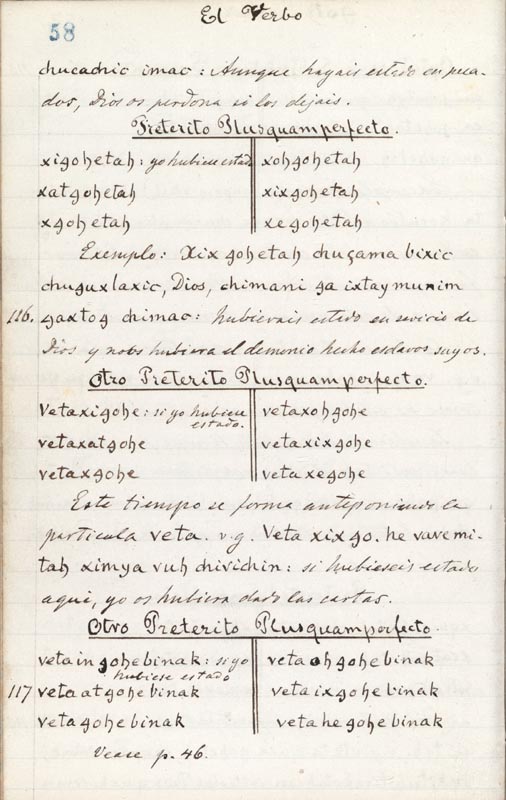 El Verbo
58
chucadric imac: Aunque hayais estado en peca-
dos, Dios os perdona si los dejais.
Preterito Plusquamperfecto.
xigohetah: yo hubiese estado xohgohetah
xatgohetah xixgohetah
xgohetah xegohetah
Exemplo: Xix gohetah chugama bixic
chuguxlaxic, Dios, chimani ga ixtaymunim
116. gaxtog chimac: hubierais estado en servicio de
Dios y no os hubiera el demonio hecho esclavos suyos.
Otro Preterito Plusquamperfecto.
Vetaxigohe: si yo hubiese estado. vetaxohgohe
vetaxatgohe vetaxixgohe
vetaxgohe vetaxegohe
Este tiempo se forma anteponiendo la
particula veta. v.g. Veta xixgo. he vavemi-
tah ximya vuh chivichin: si hubieseis estado
aqui, yo os hubiera dado las cartas.
Otro Preterito Plusquamperfecto.
vetaingohebinak: si yo hubiese estado vetaohgohebinak
117 vetaatgohebinak vetaixgohebinak
vetagohebinak vetahegohebinak
Vease p. 46.